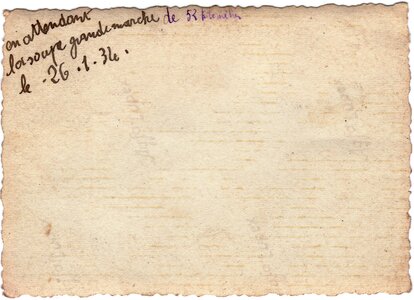 en attendant
la soupe grande marche de 52 kilomètres
le 26.1.34.